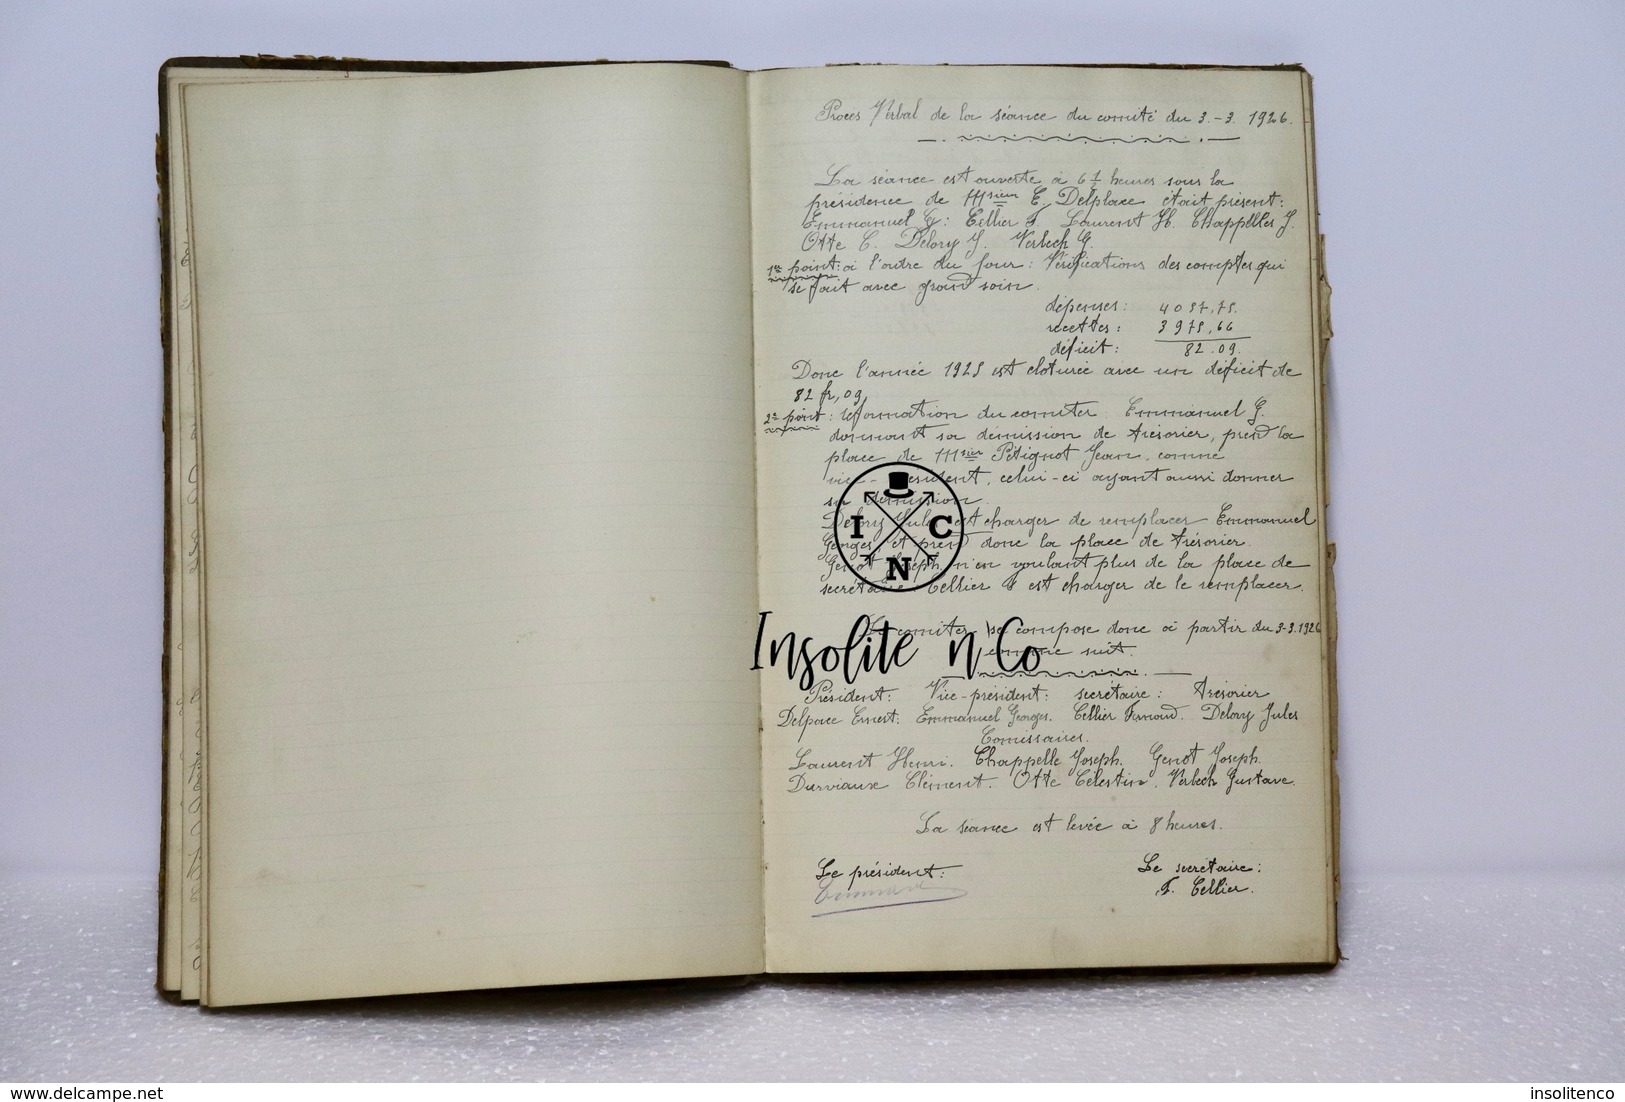 Procès Verbal de la séance du comité du 3-3. 1926.
La séance est ouverte à 6½ heures sous la
présidence de Msieu E. Delplace était présent:
Emmanuel G: Cellier F Laurent H. Chappelles J.
Otte C. Delory J. Verbech G.
1er point: à l'ordre du jour: Vérifications des comptes qui
se fait avec grand soin.
dépenses: 4057,75.
recettes: 3975,66
déficit: 82.09.
Donc l'année 1925 est cloturée avec un déficit de
82 fr,09
2e point: reformation du comiter. Emmanuel G.
donnant sa démission de trésorier, prend la
place de Msieu Pétignot Jean, comme
vice-président, celui-ci ayant aussi donner
sa démission.
Delory Jules est charger de remplacer Emmanuel
Georges et prend donc la place de trésorier.
Genot Joseph n'en voulant plus de la place de
secrétaire. Cellier F est charger de le remplacer.
Le comiter se compose donc à partir du 3-3.1926
comme suit.
Président: Vice-président: secrétaire: Trésorier
Delpace Ernest. Emmanuel Georges. Cellier Fernand. Delory Jules
Comissaires.
Laurent Henri. Chappelle Joseph. Genot Joseph.
Durviaux Clément. Otte Célestin. Verbech Gustave.
La séance est levée à 8 heures.
Le président: Le secrétaire:
F. Cellier.
I C
N
Insolite n Co
© delcampe.net
insolitenco